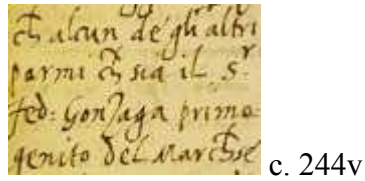 ch alcun de gli altri
parmi ch sia il s.r
fed: Gonzaga primo
genito del Marchse
c. 244v